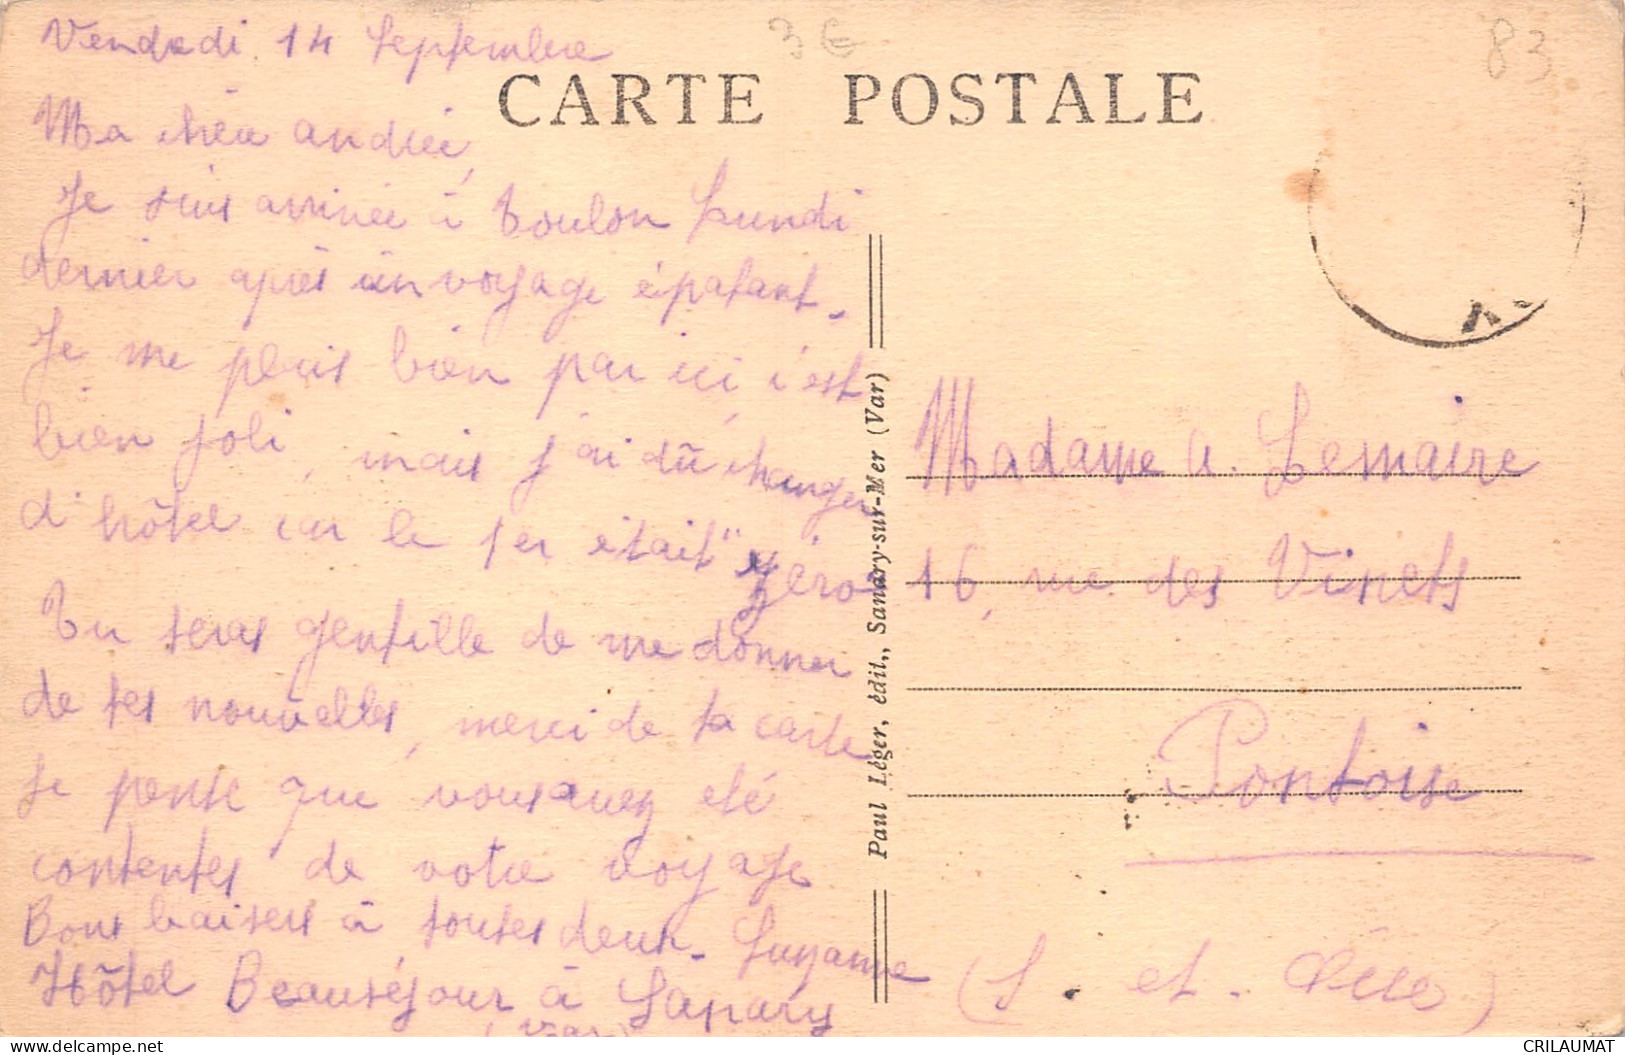 Vendredi 14 Septembre
3 €
83
CARTE POSTALE
Ma chère andrée,
Je suis arrivée à Toulon Lundi
dernier après un voyage épatant.
Je me plais bien par ici, c'est
bien joli, mais j'ai dû changer
d'hôtel car le 1er était "zéro"
Tu seras gentille de me donner
de tes nouvelles, merci de ta carte
Je pense que vous avez été
contentes de votre voyage
Bons baisers à toutes deux. Suzanne
Hôtel Beauséjour à Sanary
(Var)
Paul Léger, édit., Sanary-sur-Mer (Var)
Madame A. Lemaire
16, rue des Vinets
Pontoise
(S. et Oise)
CRILAUMAT